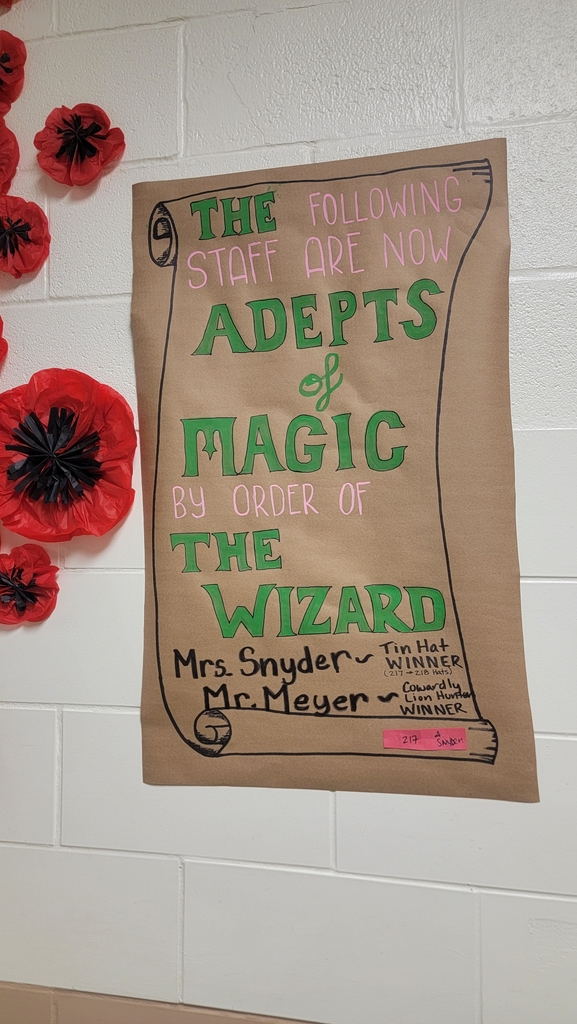 THE FOLLOWING
STAFF ARE NOW
ADEPTS
of
MAGIC
BY ORDER OF
THE
WIZARD
Mrs. Snyder ~ Tin Hat
WINNER
(217 → 218 Hats)
Mr. Meyer ~ Cowardly
Lion Hunter
WINNER
217 Snyder